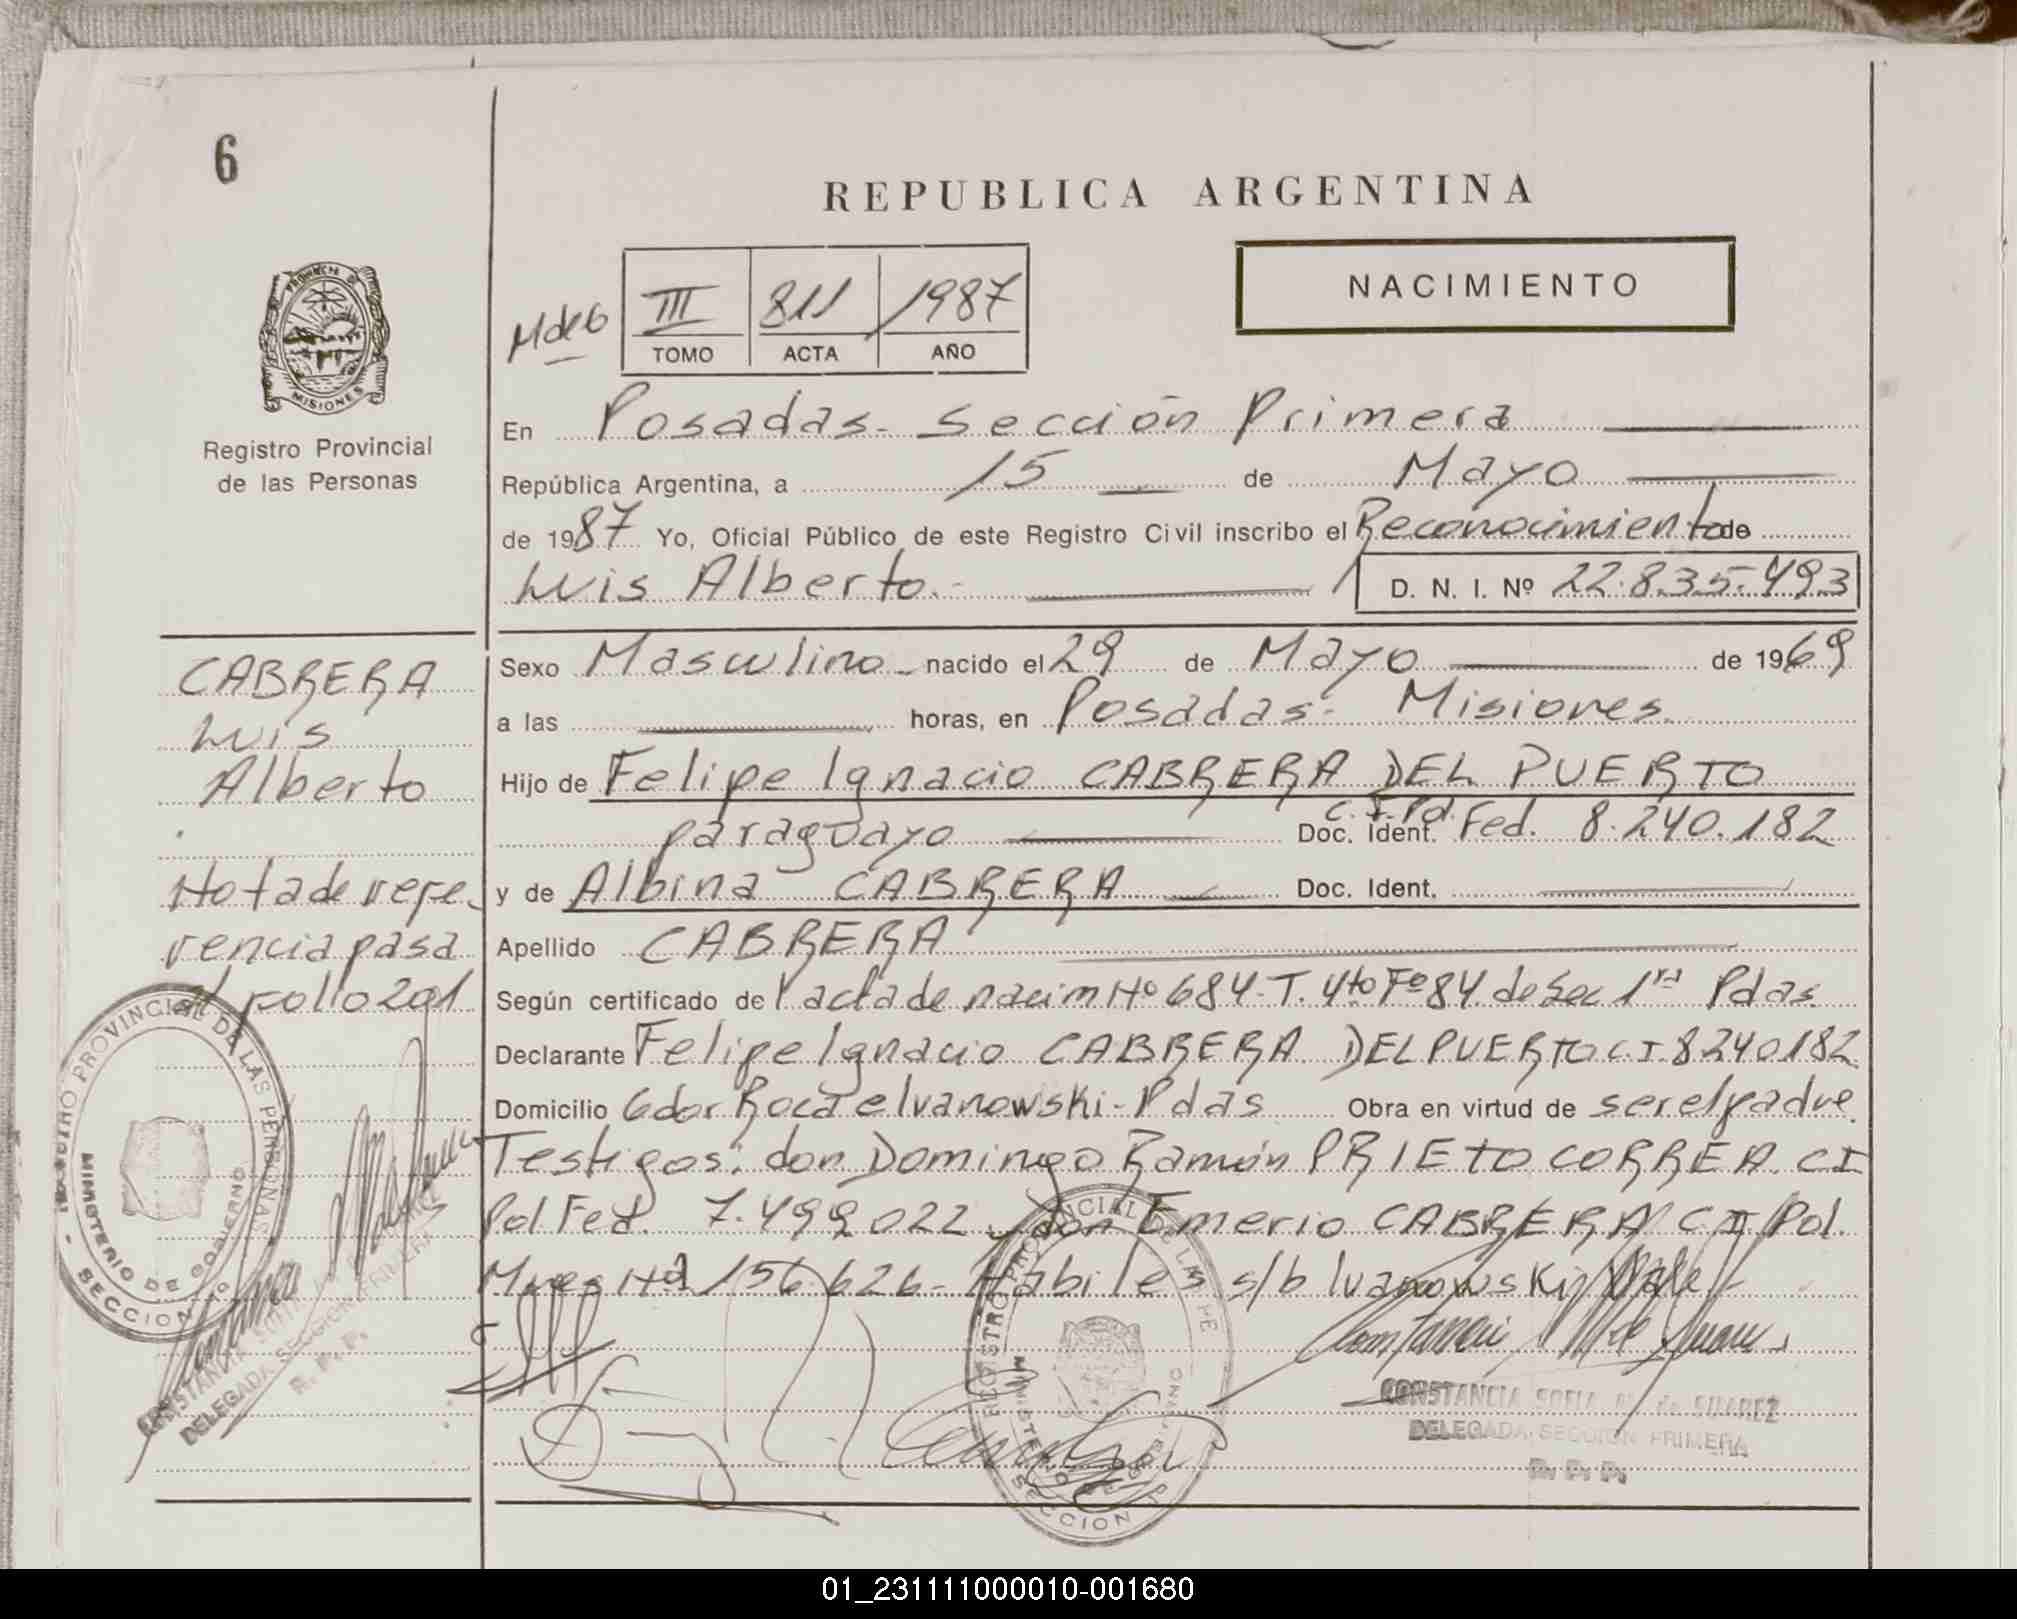 6
REPUBLICA ARGENTINA
NACIMIENTO
III 811 1987
TOMO ACTA AÑO
PROVINCIA DE
MISIONES
Registro Provincial
de las Personas
En Posadas - Sección Primera
República Argentina, a 15 de Mayo
de 1987 Yo, Oficial Público de este Registro Civil inscribo el Reconocimiento de
Luis Alberto.- D. N. I. Nº 22.835.493
CABRERA
Luis
Alberto
Nota de refe-
rencia pasa
al folio 201
Sexo Masculino nacido el 29 de Mayo de 1969
a las horas, en Posadas - Misiones
Hijo de Felipe Ignacio CABRERA DEL PUERTO
paraguayo Doc. Ident. C.I. Pol. Fed. 8.240.182
y de Albina CABRERA Doc. Ident.
Apellido CABRERA
Según certificado del acta de nacim Nº 684-T. 4to Fº 84 de Sec 1ra Pdas.
Declarante Felipe Ignacio CABRERA DEL PUERTO C.I. 8240182
Domicilio Gdor Roca e Ivanowski - Pdas Obra en virtud de ser el padre.
Testigos: don Domingo Ramón PRIETO CORREA CI
Pol Fed. 7.499.022 y don Emerio CABRERA C I Pol.
Mnes Nº 156.626 - Hábiles s/b Ivanowski Vale
CONSTANCIA SOFIA M. de SUAREZ
DELEGADA SECCION PRIMERA
R. P. P.
REGISTRO PROVINCIAL DE LAS PERSONAS
MINISTERIO DE GOBIERNO
SECCION 1º
CONSTANCIA SOFIA
DELEGADA SECCION PRIMERA
R. P. P.
REGISTRO PROVINCIAL DE LAS PE
MINISTERIO DE GOBIERNO
SECCION
01_231111000010-001680